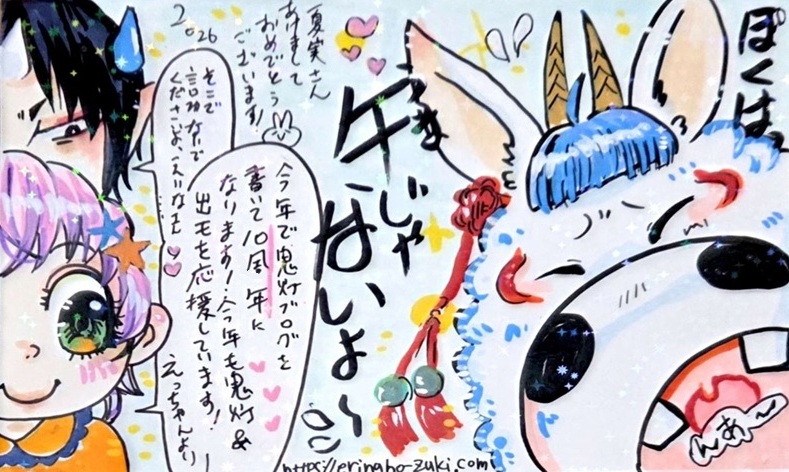 ぼくは、
午じゃ
うま
ないよ～
んあ～
夏実さん
あけまして
おめでとう
ございます!
2026
そこで
言わないで
くださいよ、
今年で鬼灯ブログを
書いて10周年に
なります!今年も鬼灯&
出モを応援しています!
えっちゃんより
https://eringho-zuki.com